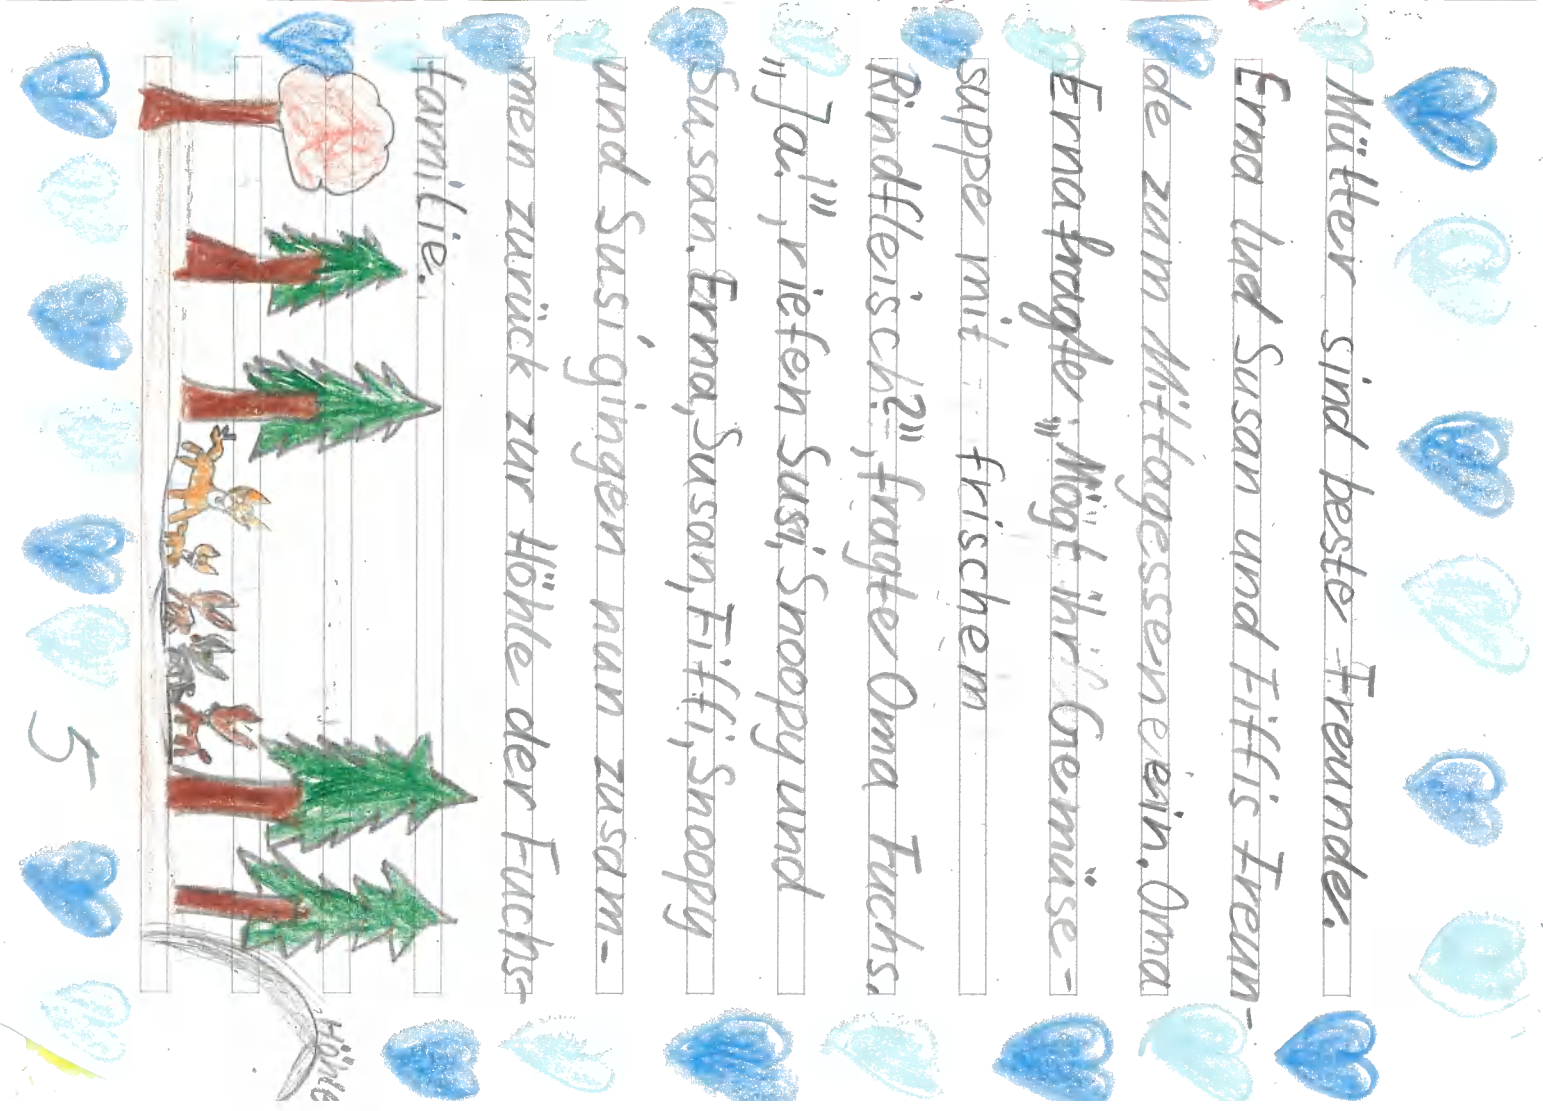 Mütter sind beste Freunde.
Erna lud Susan und Fiffis Freun-
de zum Mittagessen ein. Oma
Erna fragte „Mögt ihr Gemüse-
suppe mit frischem
Rindfleisch?", fragte Oma Fuchs.
„Ja!", riefen Susi, Snoopy und
Susan. Erna, Susan, Fiffi, Snoopy
und Susi gingen nun zusam-
men zurück zur Höhle der Fuchs-
familie.
Höhle
5